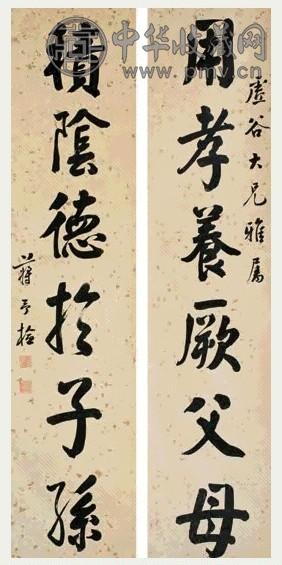 虛谷大兄雅屬
用孝養厥父母
積陰德於子孫
蔣予檢
中华收藏网
www.pmv.cn